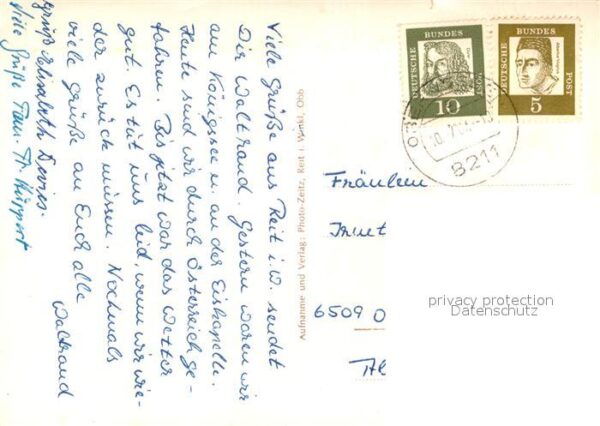 Viele Grüße aus Reit i. W. sendet
Dir Waltraud. Gestern waren wir
am Königssee u. an der Eiskapelle.
Heute sind wir durch Österreich ge-
fahren. Bis jetzt war das Wetter
gut. Es tut uns leid, wenn wir wie-
der zurück müssen. Nochmals
viele Grüße an Euch alle
Waltraud
Gruß Elisabeth
Viele Grüße Fam.
Aufnahme und Verlag: Photo-Zeitz, Reit i. Winkl, Obb
DEUTSCHE BUNDES POST
10
DEUTSCHE BUNDES POST
5
8211
Fräulein
6509 O
privacy protection
Datenschutz